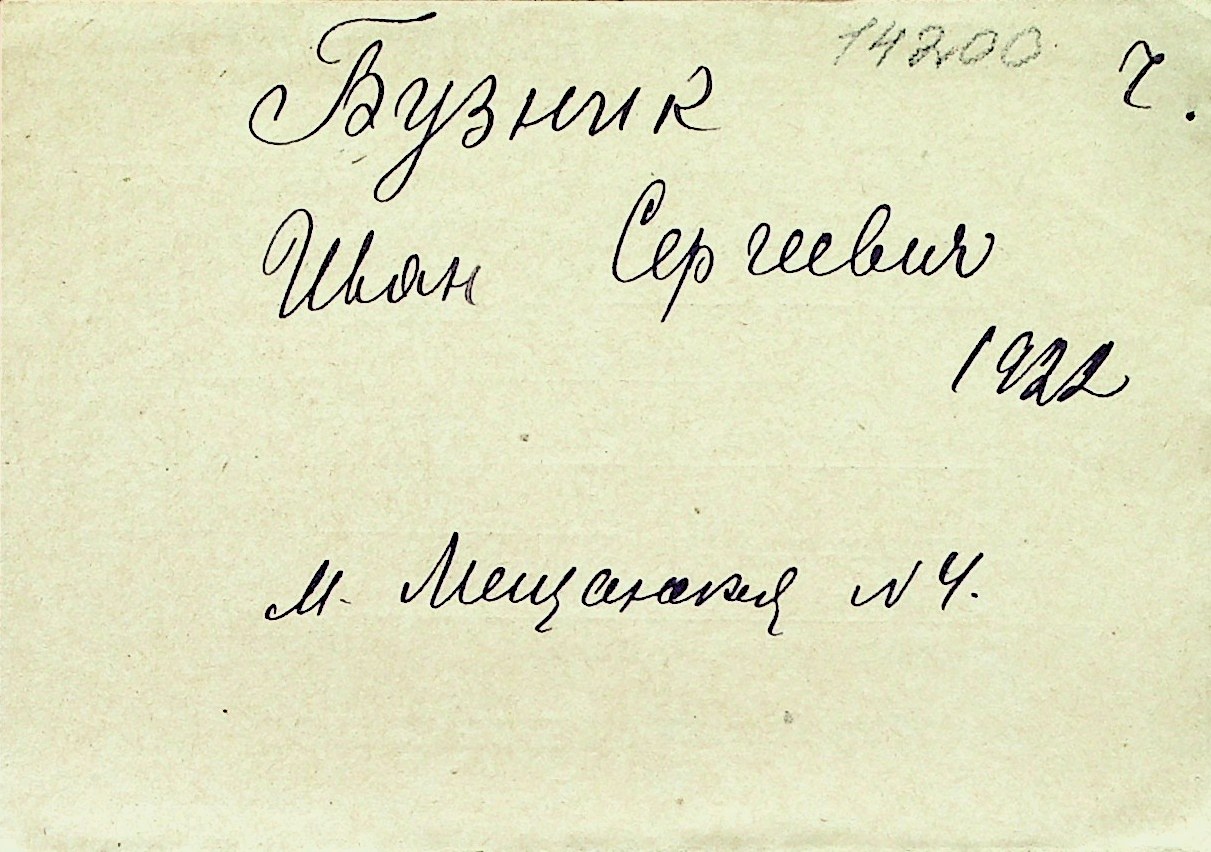 14200 ч.
Бузник
Иван Сергеевич
1922
М. Мещанская N 4.